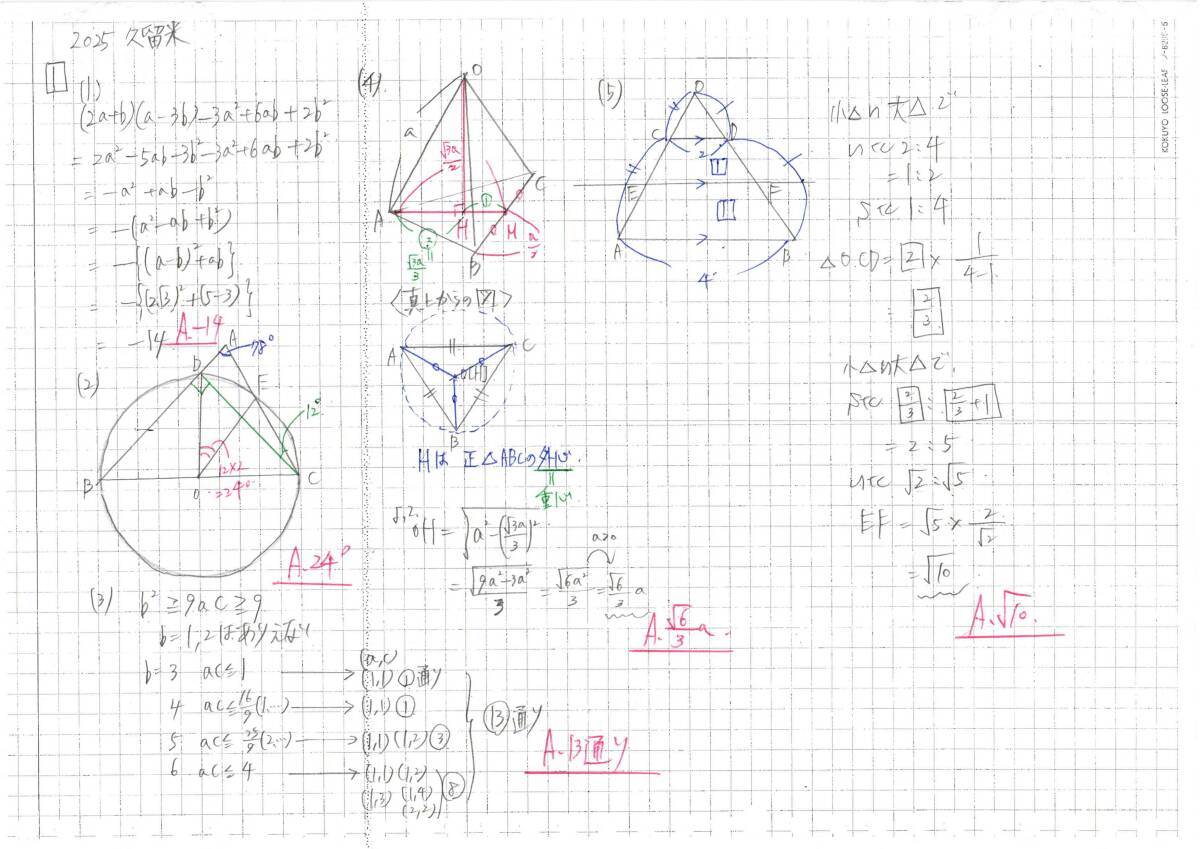 2025 久留米
1
(1)
(2a+b)(a-3b)-3a²+6ab+2b²
= 2a²-5ab-3b²-3a²+6ab+2b²
= -a²+ab-b²
= -(a²-ab+b²)
= -{(a-b)²+ab}
= -{(2√3)²+(5-3)}
= -14
A.-14
(2)
A
78°
D
E
12°
12×2
=24°
B
O
C
A.24°
(3)
b²≧9ac≧9
b=1,2はありえない
(a,c)
b=3 ac≦1 → (1,1) ①通り
4 ac≦16/9(1,…) → (1,1) ①
5 ac≦25/9(2,…) → (1,1)(1,2) ③
6 ac≦4 → (1,1)(1,2)
(1,3)(1,4)
(2,2)
⑧
⑬通り
A.13通り
(4)
O
a
√3a/2
C
A
①
H
M
②
=
√3a/3
B
a/2
<真上からの図>
A
C
O[H]
B
Hは 正△ABCの外心
=
重心
よって
OH = √(a²-(√3a/3)²)
a>0
= √(9a²-3a²)/3 = √6a²/3 = √6/3 a
A.√6/3 a.
(5)
O
C
D
2
I
E
F
II
A
B
4
小△∽大△で
∽比 2:4
= 1:2
S比 1:4
△OCD = 2 × 1/(4-1)
= 2/3
小△∽大△で
S比 2/3 : 2/3+1
= 2:5
∽比 √2:√5
EF = √5 × 2/√2
= √10
A.√10.
KOKUYO LOOSE-LEAF